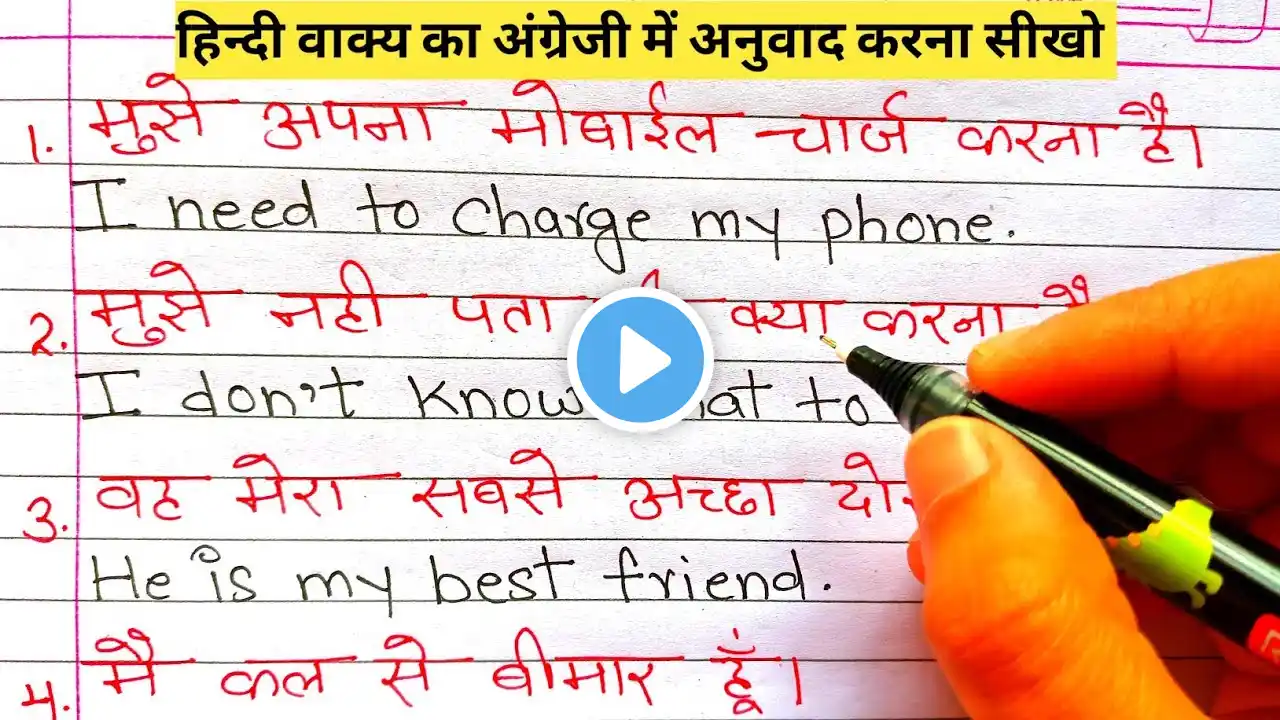 हिन्दी वाक्य का अंग्रेजी में अनुवाद करना सीखो
1. मुझे अपना मोबाईल चार्ज करना है।
I need to charge my phone.
2. मुझे नही पता क्या करना
I don't know to
3. वह मेरा सबसे अच्छा
He is my best friend.
4. मै कल से बीमार हूँ।